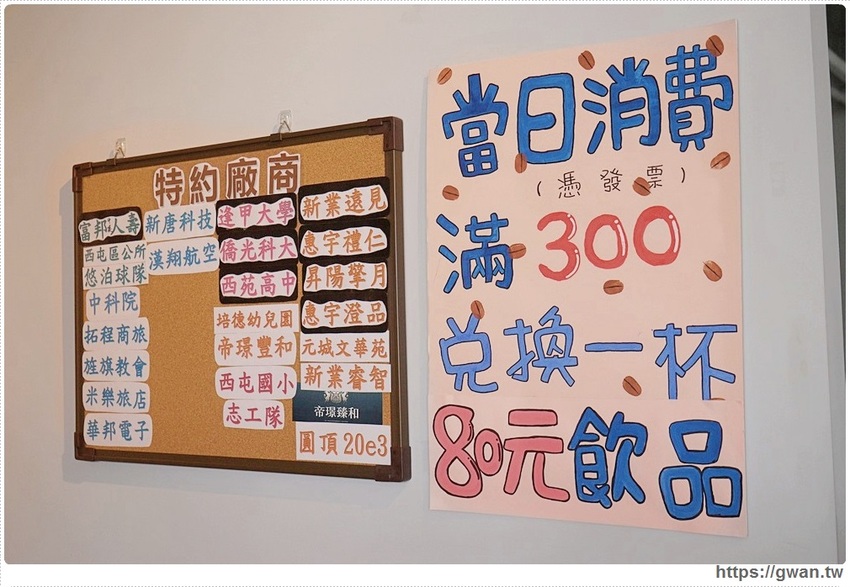 特約廠商
富邦人壽
西屯區公所
悠泊球隊
中科院
拓程商旅
旌旗教會
米樂旅店
華邦電子
新唐科技
漢翔航空
逢甲大學
僑光科大
西苑高中
培德幼兒園
帝璟豐和
西屯國小
志工隊
新業遠見
惠宇禮仁
昇陽擎月
惠宇澄品
元城文華苑
新業睿智
帝璟臻和
圓頂20e3
當日消費
(憑發票)
滿300
兌換一杯
80元飲品
https://gwan.tw